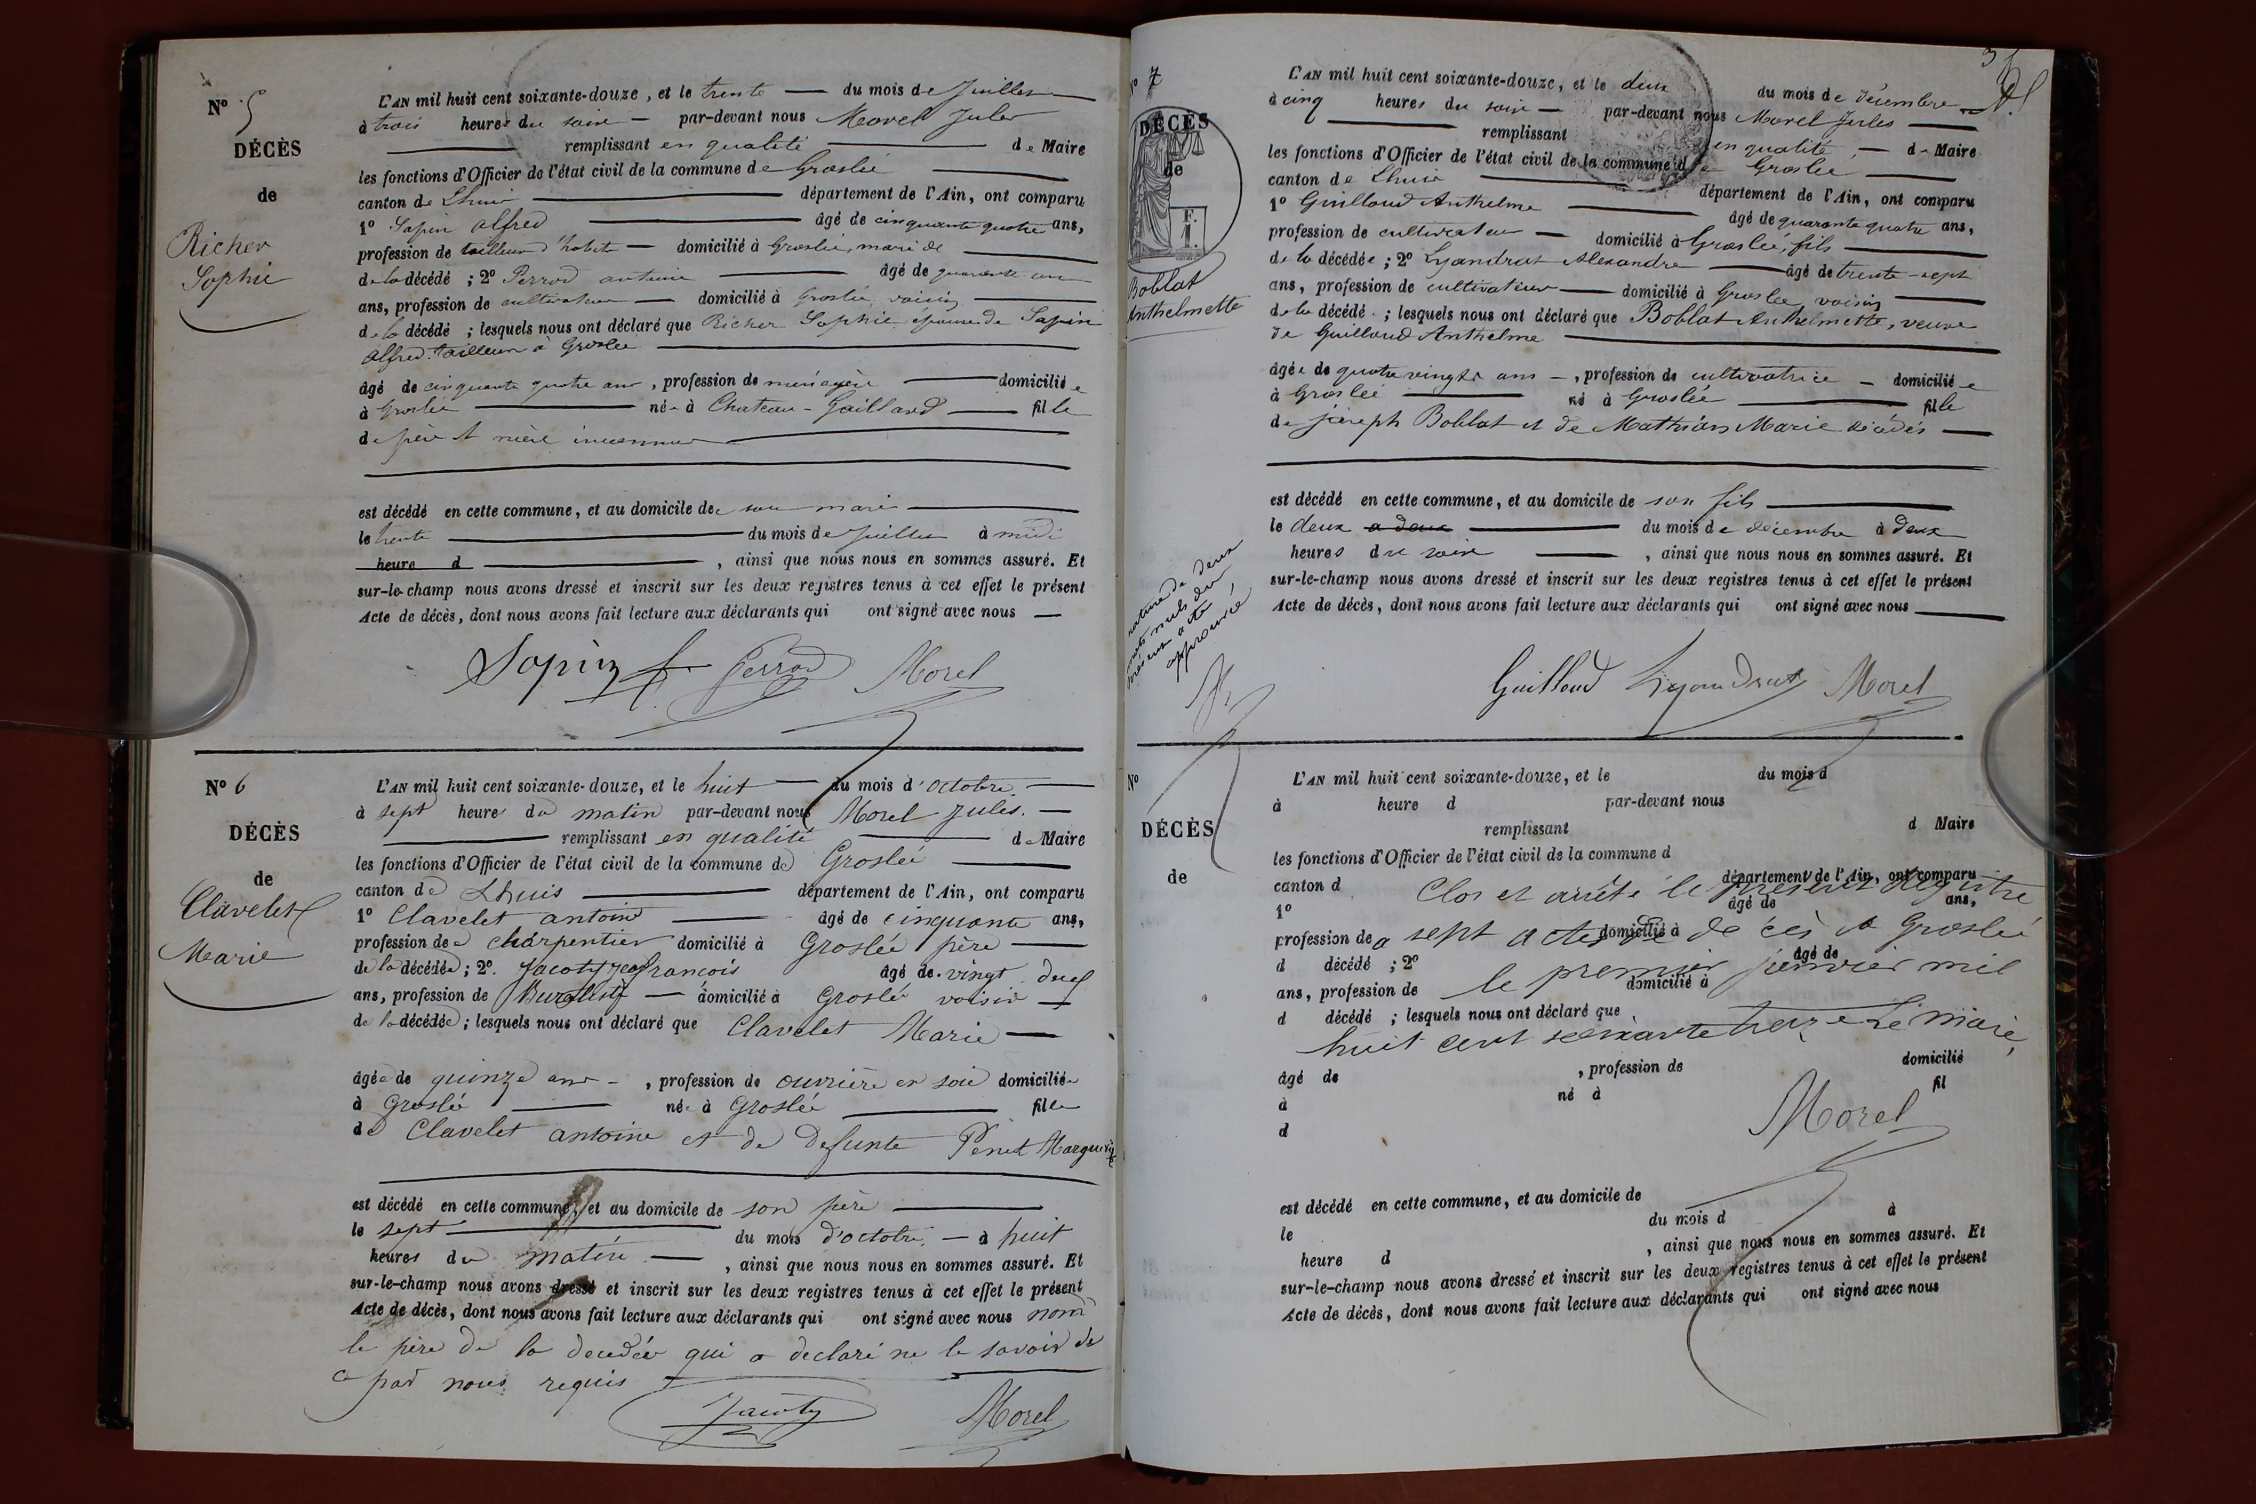 N° 5
DÉCÈS
de
Richer
Sophie
L'AN mil huit cent soixante-douze, et le trente du mois de Juillet
à trois heures du soir par-devant nous Morel Jules
remplissant en qualité de Maire
les fonctions d'Officier de l'état civil de la commune de Groslée
canton de Lhuis département de l'Ain, ont comparu
1° Sapin alfred âgé de cinquante quatre ans,
profession de tailleur d'habits domicilié à Groslée, mari de
de la décédé ; 2° Perrod antoine âgé de quarante un
ans, profession de cultivateur domicilié à Groslée, voisin
de la décédé ; lesquels nous ont déclaré que Richer Sophie épouse de Sapin
Alfred tailleur à Groslée
âgé de cinquante quatre ans, profession de ménagère domiciliée
à Groslée née à Chateau-Gaillard fille
de père et mère inconnus
est décédé en cette commune, et au domicile de son mari
le trente du mois de Juillet à midi
heure d , ainsi que nous nous en sommes assuré. Et
sur-le-champ nous avons dressé et inscrit sur les deux registres tenus à cet effet le présent
Acte de décès, dont nous avons fait lecture aux déclarants qui ont signé avec nous
Sapin Perrod Morel
N° 6
DÉCÈS
de
Clavelet
Marie
L'AN mil huit cent soixante-douze, et le huit du mois d'octobre
à sept heures du matin par-devant nous Morel Jules.
remplissant en qualité de Maire
les fonctions d'Officier de l'état civil de la commune de Groslée
canton de Lhuis département de l'Ain, ont comparu
1° Clavelet antoine âgé de cinquante ans,
profession de charpentier domicilié à Groslée père
de la décédée ; 2°. Jacoty françois âgé de vingt deux
ans, profession de Buraliste domicilié à Groslée voisin
de la décédée ; lesquels nous ont déclaré que Clavelet Marie
âgée de quinze ans, profession de ouvrière en soie domiciliée
à Groslée née à Groslée fille
de Clavelet antoine et de defunte Penet Marguerite
est décédé en cette commune, et au domicile de son père
le sept du mois d'octobre à huit
heures du matin , ainsi que nous nous en sommes assuré. Et
sur-le-champ nous avons dressé et inscrit sur les deux registres tenus à cet effet le présent
Acte de décès, dont nous avons fait lecture aux déclarants qui ont signé avec nous non
le père de la decedée qui a declaré ne le savoir de
ce par nous requis
Jacoty Morel
N° 7
DÉCÈS
de
F.
1.
Boblat
Anthelmette
L'AN mil huit cent soixante-douze, et le deux du mois de décembre
à cinq heures du soir par-devant nous Morel Jules
remplissant en qualité de Maire
les fonctions d'Officier de l'état civil de la commune de Groslée
canton de Lhuis département de l'Ain, ont comparu
1° Guilloud Anthelme âgé de quarante quatre ans,
profession de cultivateur domicilié à Groslée, fils
de la décédée ; 2° Lyandrat Alexandre âgé de trente-sept
ans, profession de cultivateur domicilié à Groslée, voisin
de la décédé ; lesquels nous ont déclaré que Boblat Anthelmette, veuve
de Guilloud Anthelme
âgée de quatre vingts ans, profession de cultivatrice domiciliée
à Groslée né à Groslée fille
de joseph Boblat et de Mathian Marie décédés
est décédé en cette commune, et au domicile de son fils
le deux a deux du mois de décembre à deux
heures du soir , ainsi que nous nous en sommes assuré. Et
sur-le-champ nous avons dressé et inscrit sur les deux registres tenus à cet effet le présent
Acte de décès, dont nous avons fait lecture aux déclarants qui ont signé avec nous
rature de deux
mots nuls du
présent acte
approuvé
Guilloud Lyandrat Morel
N°
DÉCÈS
de
L'AN mil huit cent soixante-douze, et le du mois d
à heure d par-devant nous
remplissant d Maire
les fonctions d'Officier de l'état civil de la commune d
canton d département de l'Ain, ont comparu
Clos et arrêté le présent Registre
1° âgé de ans,
profession de domicilié à
a sept actes de décès à Groslée
d décédé ; 2° âgé de
le premier janvier mil
ans, profession de domicilié à
d décédé ; lesquels nous ont déclaré que
huit cent soixante treize Le maire,
âgé de , profession de domicilié
à né à fil
d
Morel
est décédé en cette commune, et au domicile de
le du mois d à
heure d , ainsi que nous nous en sommes assuré. Et
sur-le-champ nous avons dressé et inscrit sur les deux registres tenus à cet effet le présent
Acte de décès, dont nous avons fait lecture aux déclarants qui ont signé avec nous